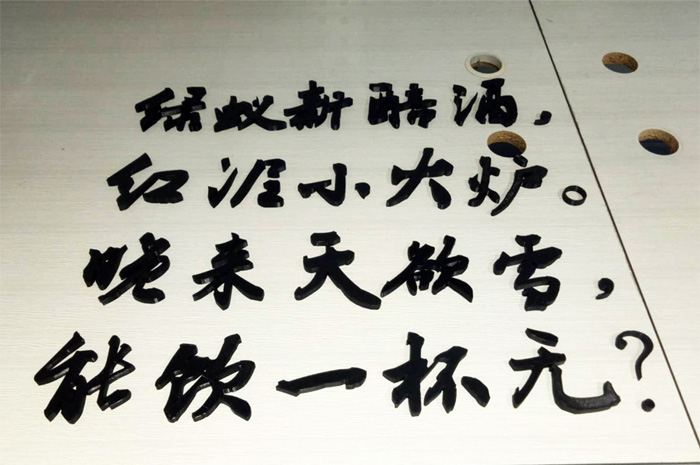 绿蚁新醅酒，
红泥小火炉。
晚来天欲雪，
能饮一杯无？